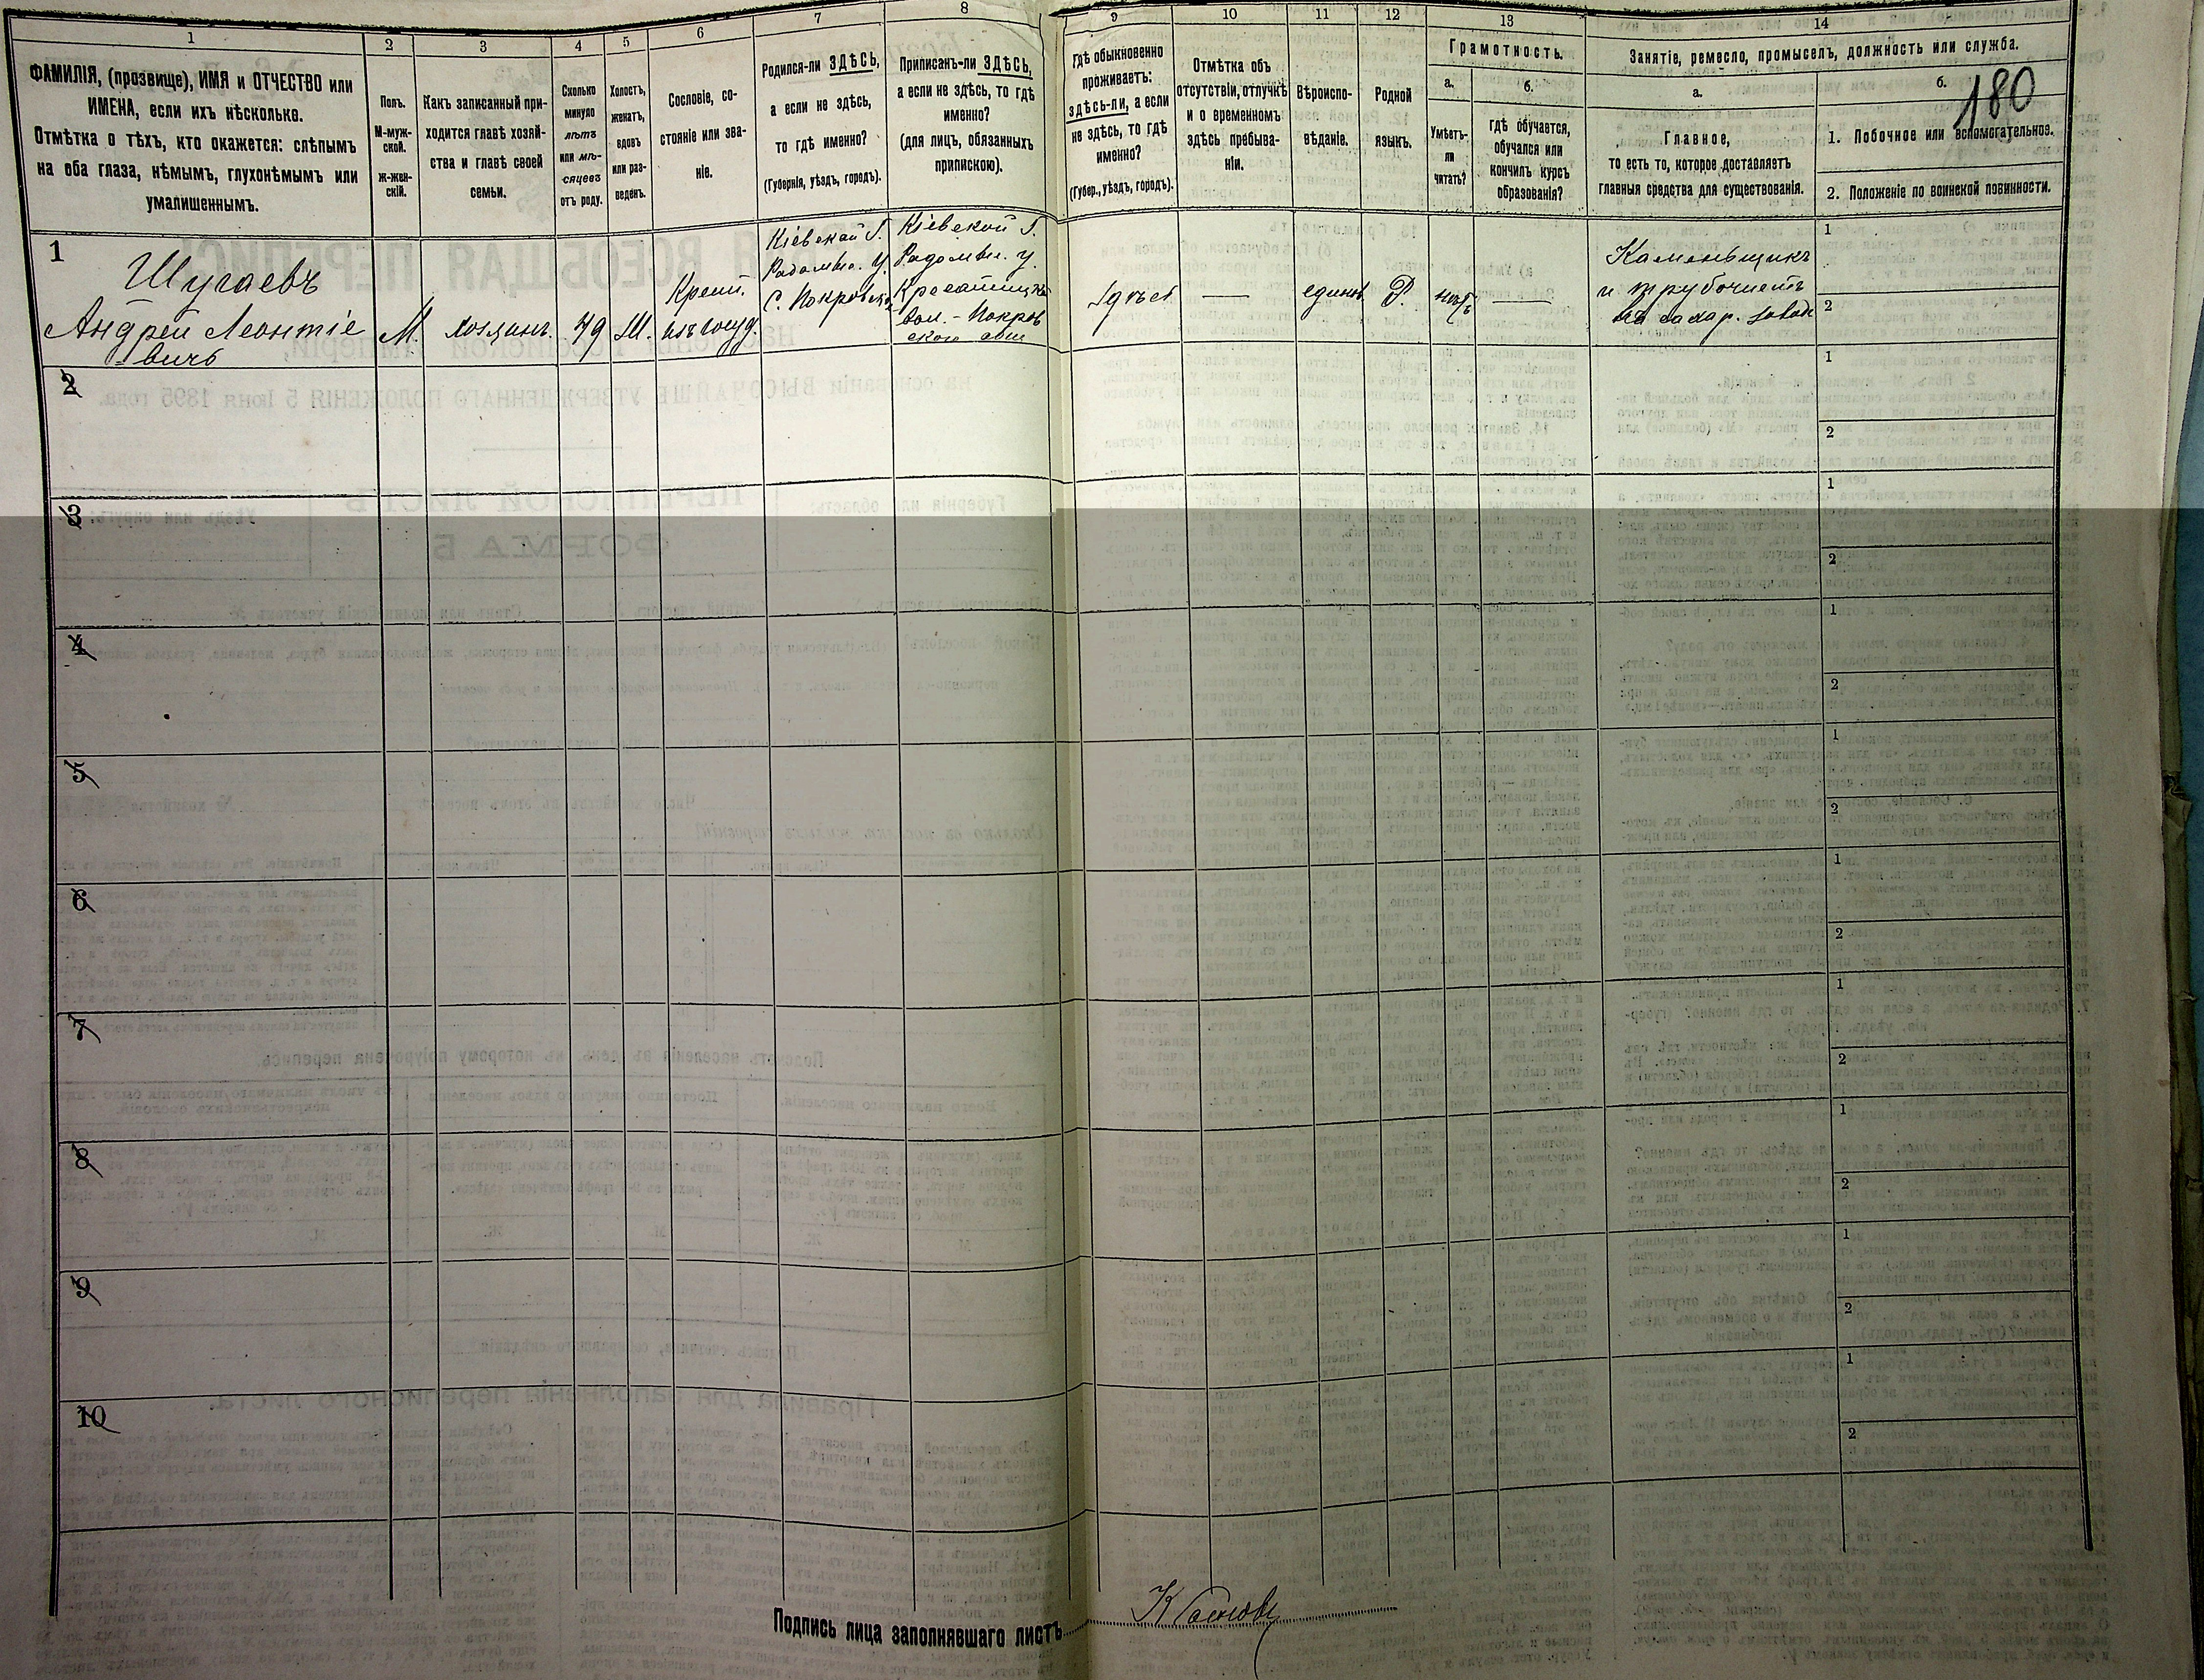 1
2
3
4
5
6
7
8
9
10
11
12
13
14
ФАМИЛІЯ, (прозвище), ИМЯ и ОТЧЕСТВО или
ИМЕНА, если ихъ нѣсколько.
Отмѣтка о тѣхъ, кто окажется: слѣпымъ
на оба глаза, нѣмымъ, глухонѣмымъ или
умалишеннымъ.
Полъ.
М-муж-
ской.
ж-жен-
скій.
Какъ записанный при-
ходится главѣ хозяй-
ства и главѣ своей
семьи.
Сколько
минуло
лѣтъ
или мѣ-
сяцевъ
отъ роду.
Холостъ,
женатъ,
вдовъ
или раз-
веденъ.
Сословіе, со-
стояніе или зва-
ніе.
Родился-ли ЗДѢСЬ,
а если не здѣсь,
то гдѣ именно?
(Губернія, уѣздъ, городъ).
Приписанъ-ли ЗДѢСЬ,
а если не здѣсь, то гдѣ
именно?
(для лицъ, обязанныхъ
припискою).
Гдѣ обыкновенно
проживаетъ:
здѣсь-ли, а если
не здѣсь, то гдѣ
именно?
(Губер., уѣздъ, городъ).
Отмѣтка объ
отсутствіи, отлучкѣ
и о временномъ
здѣсь пребыва-
ніи.
Вѣроиспо-
вѣданіе.
Родной
языкъ.
Грамотность.
а.
Умѣетъ-
ли
читать?
б.
гдѣ обучается,
обучался или
кончилъ курсъ
образованія?
Занятіе, ремесло, промыселъ, должность или служба.
а.
Главное,
то есть то, которое доставляетъ
главныя средства для существованія.
б.
180
1. Побочное или вспомогательное.
2. Положеніе по воинской повинности.
1
Шугаевъ
Андрей Леонтіе
вичъ
М.
хозяинъ.
49
Ж.
Крест.
изъ госуд.
Кіевской Г.
Радомыс. У.
С. Покровско
Кіевской Г.
Радомыс. у.
вол. - Покров
здѣсь
—
единов.
Р.
нѣтъ
—
Каменьщикъ
и трубочистъ
на сахар. завод
1
2
2
1
2
3
1
2
4
1
2
5
1
2
6
1
2
7
1
2
8
1
2
9
1
2
10
1
2
Подпись лица заполнявшаго листъ